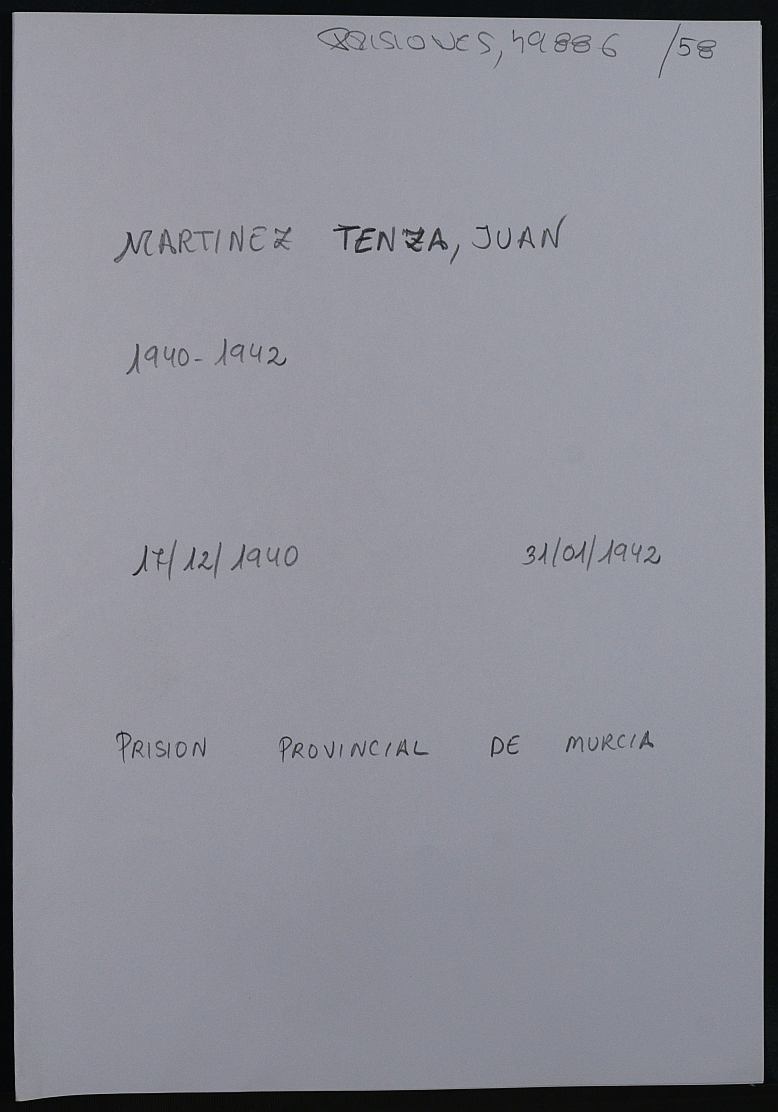 PRISIONES, 49886 /58
MARTINEZ TENZA, JUAN
1940-1942
17/12/1940 31/01/1942
PRISION PROVINCIAL DE MURCIA